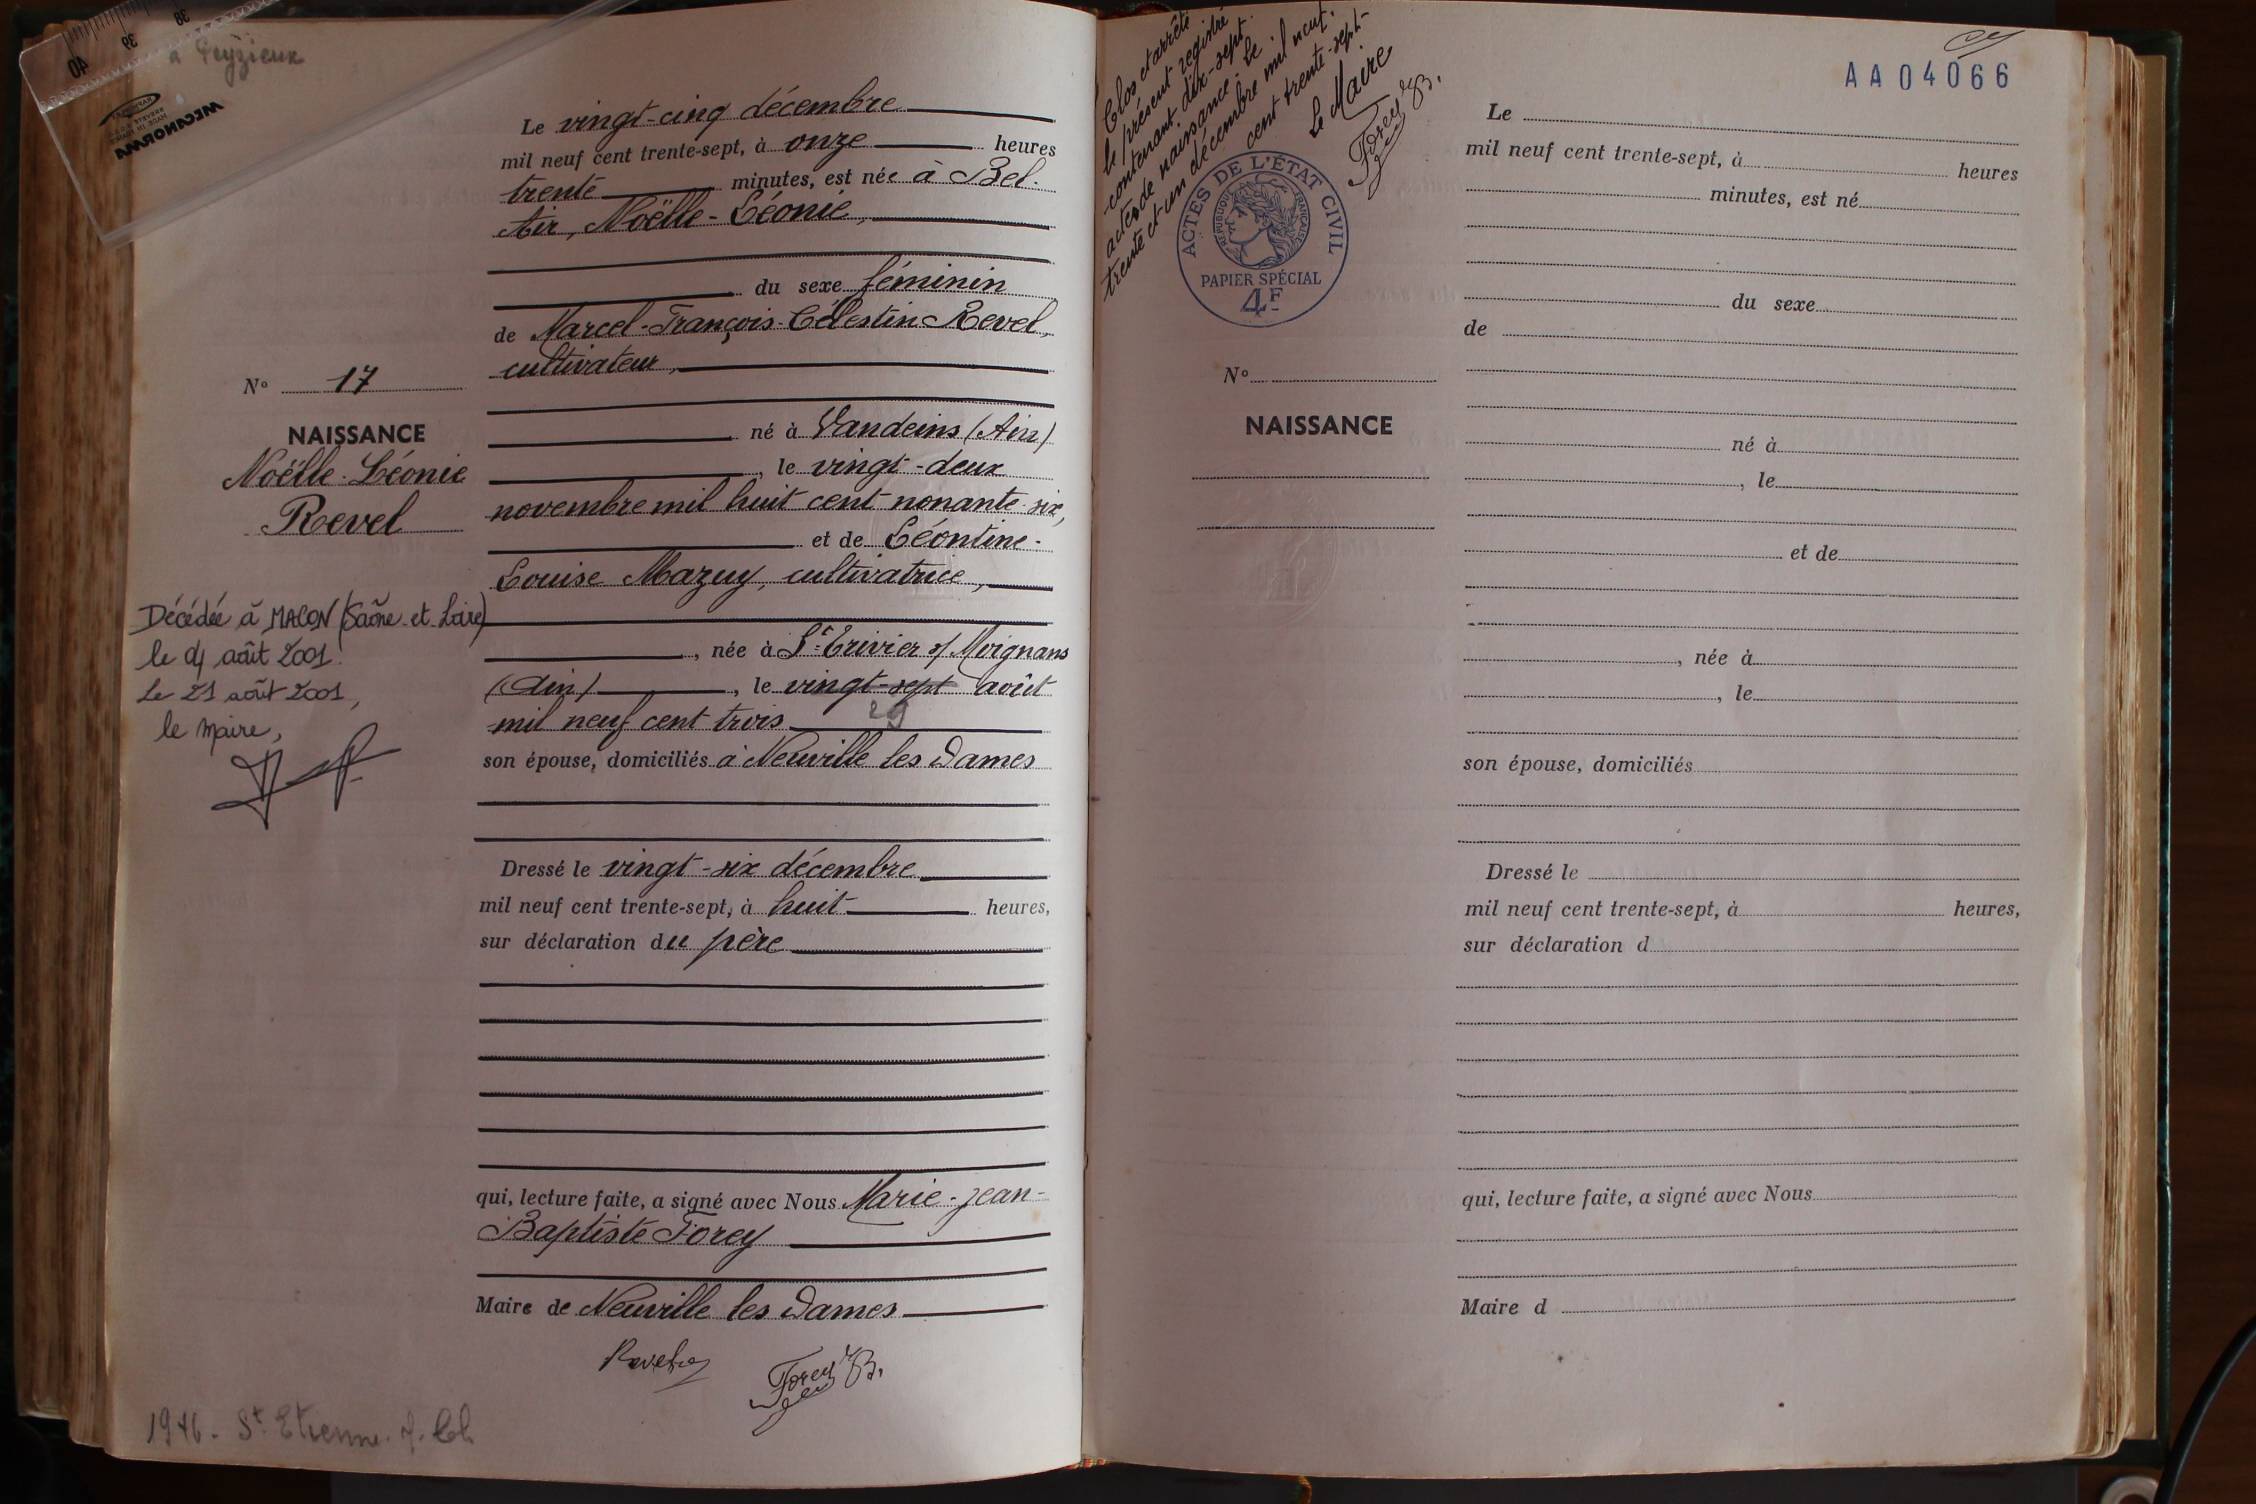 à Peyzieux
40
39
38
MECANORMA
Le vingt-cinq décembre
mil neuf cent trente-sept, à onze heures
trente minutes, est née à Bel-
Air, Noëlle-Léonie,
du sexe féminin
de Marcel-François-Célestin Revel,
cultivateur,
né à Vandeins (Ain)
, le vingt-deux
novembre mil huit cent nonante-six,
et de Léontine-
Louise Mazuy, cultivatrice,
, née à St-Trivier s/ Moignans
(Ain) , le vingt-sept août
29
mil neuf cent trois
son épouse, domiciliés à Neuville les Dames
Dressé le vingt-six décembre
mil neuf cent trente-sept, à huit heures,
sur déclaration du père
qui, lecture faite, a signé avec Nous Marie-Jean-
Baptiste Forey
Maire de Neuville les Dames
Forey JB.
No 17
NAISSANCE
Noëlle-Léonie
Revel
Décédée à MACON (Saône-et-Loire)
le 4 août 2001.
Le 21 août 2001,
le Maire,
1946 - St Etienne s. Ch
Clos et arrêté
le présent registre
contenant dix-sept
actes de naissance - le
trente et un décembre mil neuf
cent trente-sept-
Le Maire
Forey JB.
ACTES DE L'ÉTAT CIVIL
RÉPUBLIQUE FRANÇAISE
PAPIER SPÉCIAL
4F
AA04066
No
NAISSANCE
Le
mil neuf cent trente-sept, à heures
minutes, est né
du sexe
de
né à
, le
et de
, née à
, le
son épouse, domiciliés
Dressé le
mil neuf cent trente-sept, à heures,
sur déclaration d
qui, lecture faite, a signé avec Nous
Maire d